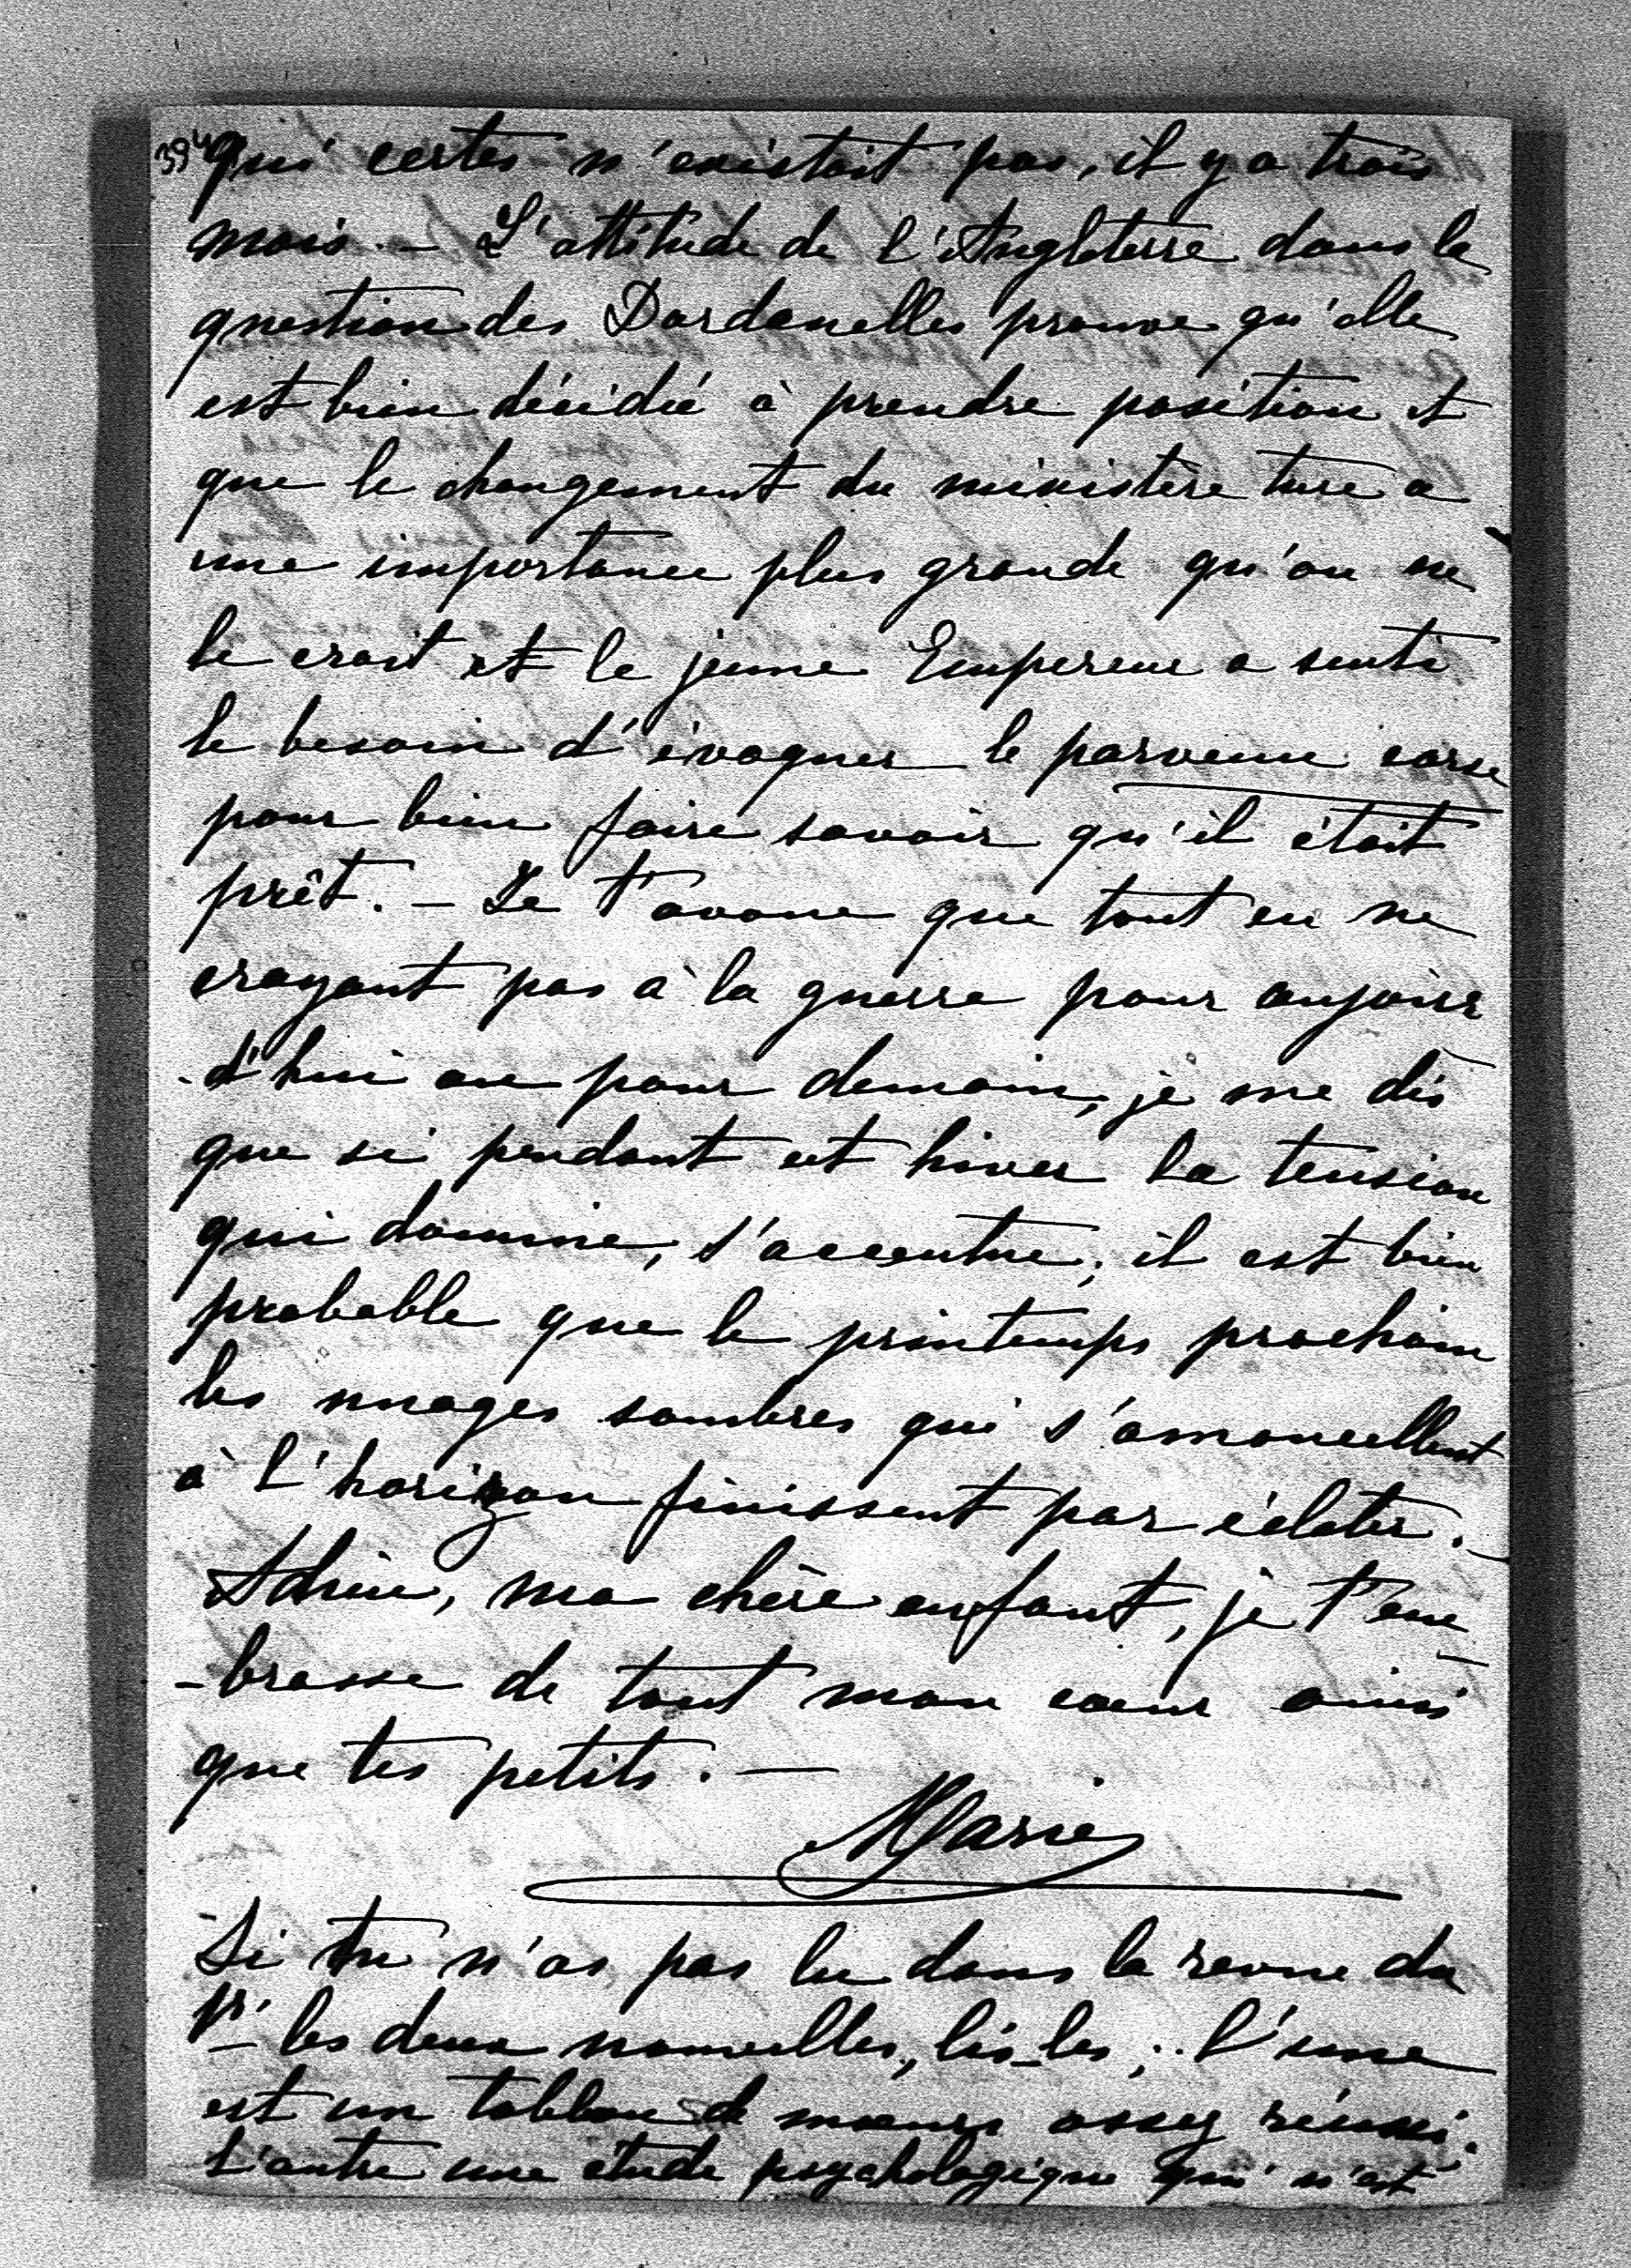 394
qui certes n'existait pas, il y a trois
mois. – L'attitude de l'Angleterre dans la
question des Dardanelles prouve qu'elle
est bien décidée à prendre position et
que le changement du ministère turc a
une importance plus grande qu'on ne
le croit et le jeune Empereur a senti
le besoin d'évoquer le parvenu corse
pour bien faire savoir qu'il était
prêt. – Je t'avoue que tout en ne
croyant pas à la guerre pour aujour
-d'hui ou pour demain, je me dis
que si pendant cet hiver la tension
qui domine, s'accentue, il est bien
probable que le printemps prochain
les nuages sombres qui s'amoncellent
à l'horizon finissent par éclater. –
Adieu, ma chère enfant, je t'em
-brasse de tout mon cœur ainsi
que tes petits. –
Marie
Si tu n'as pas lu dans la revue du
1er les deux nouvelles, lis-les; l'une
est un tableau de mœurs assez réussi.
L'autre une étude psychologique qui n'est